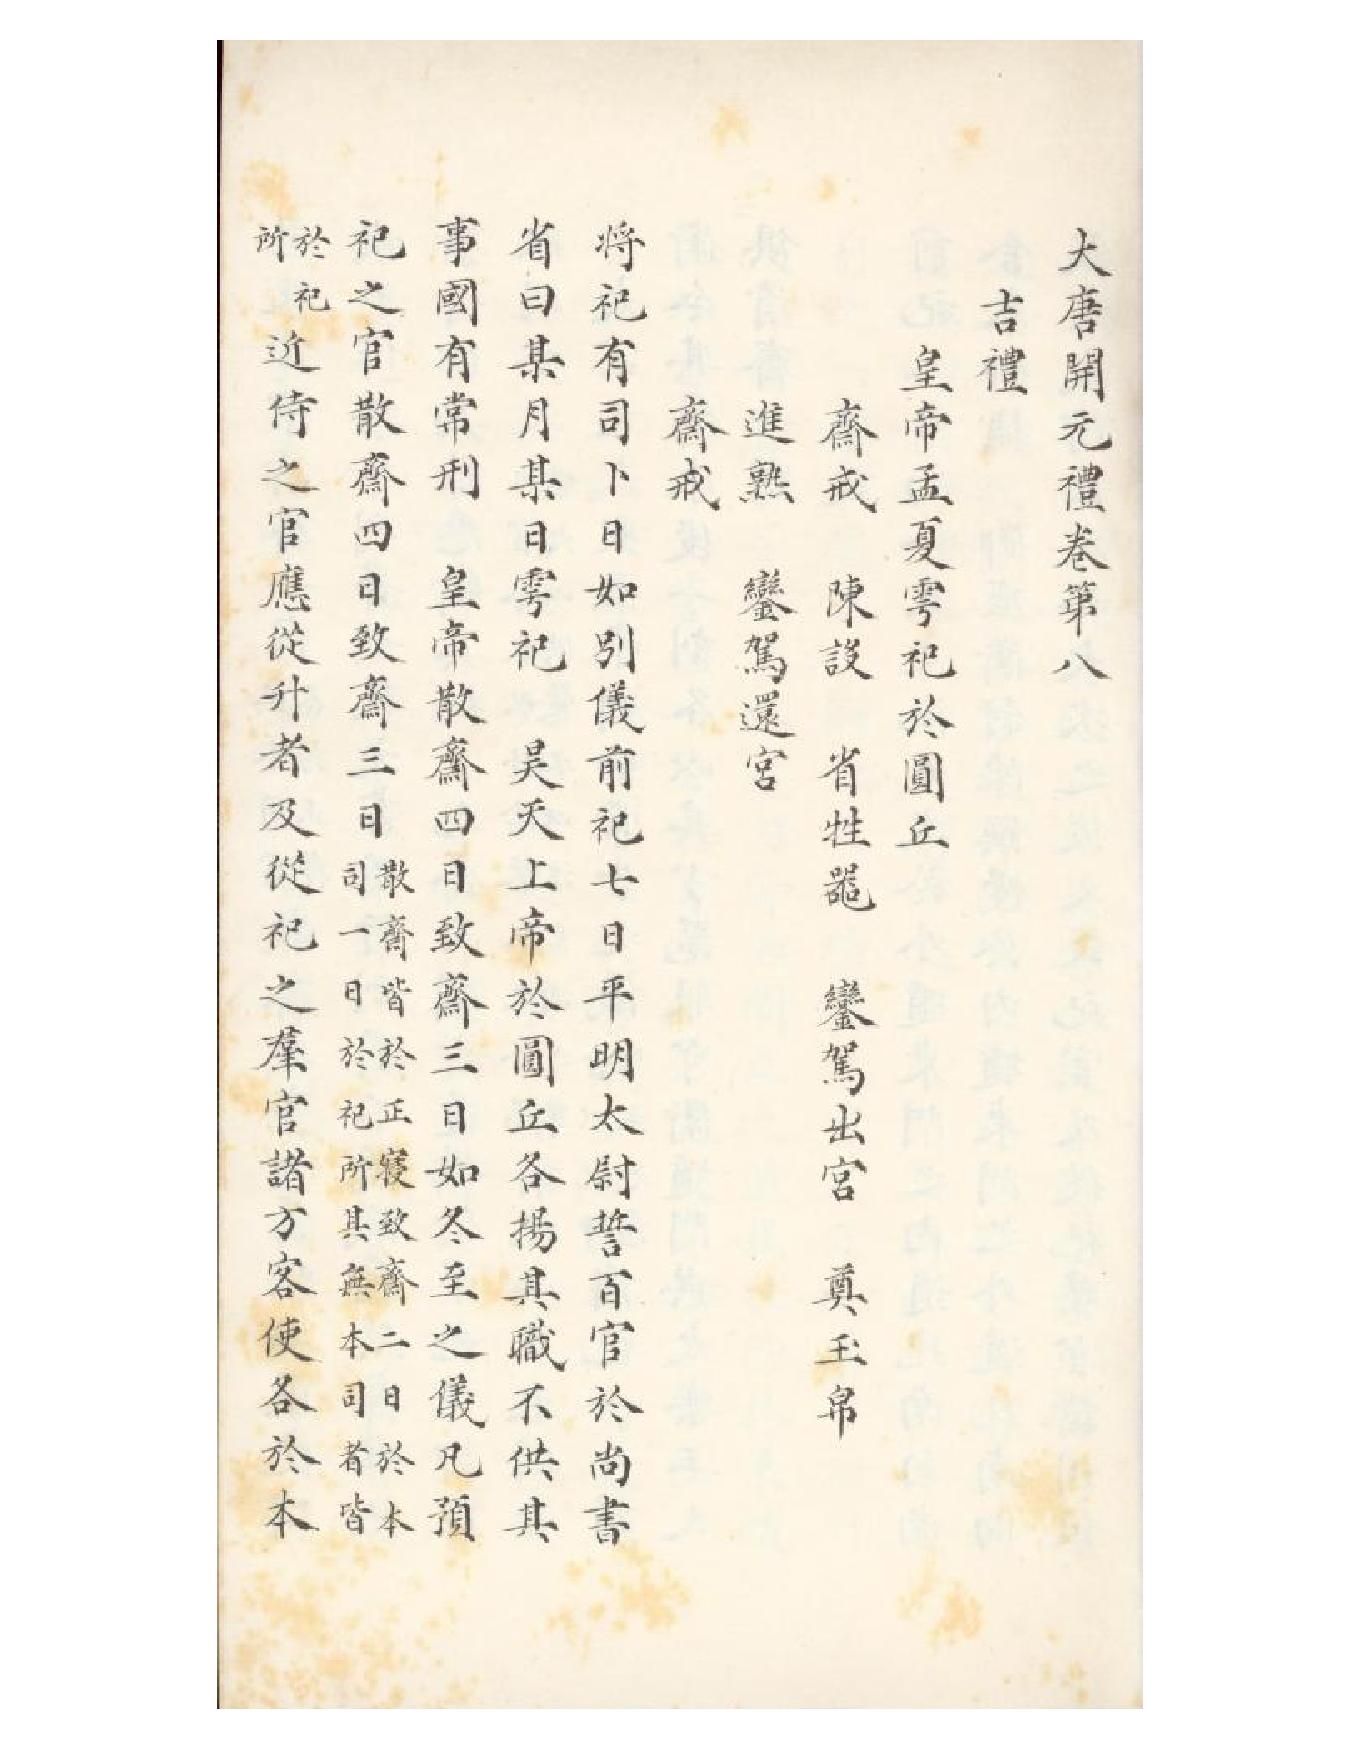 大唐開元禮卷第八
吉禮
皇帝孟夏雩祀於圓丘
齋戒　陳設　省牲器　鑾駕出宮　奠玉帛
進熟　鑾駕還宮
齋戒
将祀有司卜日如別儀前祀七日平明太尉誓百官於尚書
省曰某月某日雩祀　昊天上帝於圓丘各揚其職不供其
事國有常刑　皇帝散齋四日致齋三日如冬至之儀凡預
祀之官散齋四日致齋三日
散齋皆於正寢致齋二日於本
司一日於祀所其無本司者皆
於祀
所
近侍之官應從升者及從祀之羣官諸方客使各於本